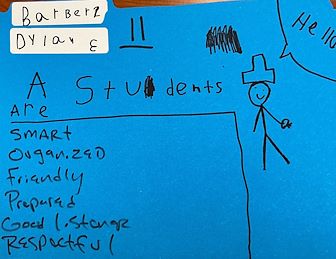 Barber2
Dylan E
11
Hello
A Students
Are
SMARt
ORganiZED
Friendly
Prepared
Good listener
RESPectful